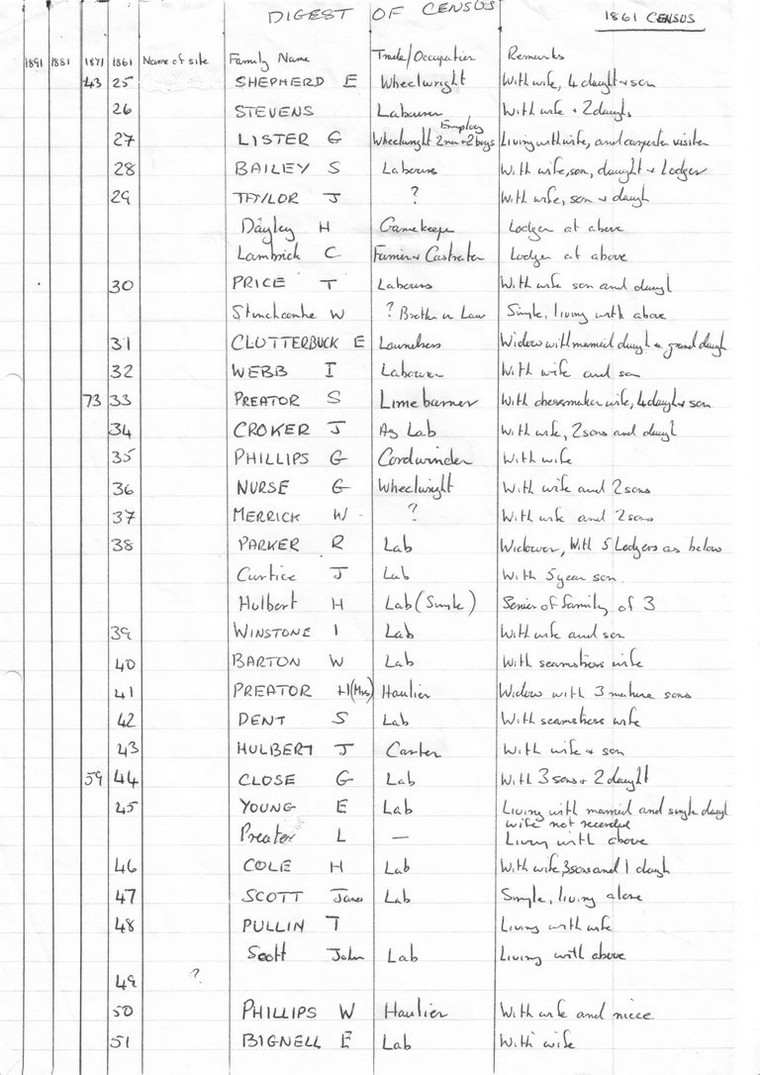 DIGEST OF CENSUS
1861 CENSUS
1891 1881 1871 1861 Name of site Family Name Trade/Occupation Remarks
43 25 SHEPHERD E Wheelwright With wife, 4 daught + son
26 STEVENS Labourer With wife + 2 daughs
27 LISTER G Wheelwright Employ 2 men + 2 boys Living with wife, and carpenter visitor
28 BAILEY S Labourer With wife, son, daught + Lodger
29 TAYLOR J ? With wife, son + daugh
Dayley H Gamekeeper Lodger at above
Lambrick C Farrier + Castrator Lodger at above
30 PRICE T Labourer With wife son and daugh
Stinchcombe W ? Brother in Law Single, living with above
31 CLUTTERBUCK E Laundress Widow with married daugh + grand daugh
32 WEBB I Labourer With wife and son
73 33 PREATOR S Lime burner With dressmaker wife, 4 daugh + son
34 CROKER J Ag Lab With wife, 2 sons and daugh
35 PHILLIPS G Cordwinder With wife
36 NURSE G Wheelwright With wife and 2 sons
37 MERRICK W ? With wife and 2 sons
38 PARKER R Lab Widower, With 5 Lodgers as below
Curtice J Lab With 5 year son
Hulbert H Lab (Single) Senior of family of 3
39 WINSTONE I Lab With wife and son
40 BARTON W Lab With seamstress wife
41 PREATOR H (Mrs) Haulier Widow with 3 mature sons
42 DENT S Lab With seamstress wife
43 HULBERT J Carter With wife + son
59 44 CLOSE G Lab With 3 sons + 2 daught
45 YOUNG E Lab Living with married and single daugh
wife not recorded
Preator L — Living with above
46 COLE H Lab With wife, 3 sons and 1 daugh
47 SCOTT James Lab Single, living alone
48 PULLIN T Living with wife
Scott John Lab Living with above
49 ?
50 PHILLIPS W Haulier With wife and niece
51 BIGNELL E Lab With wife